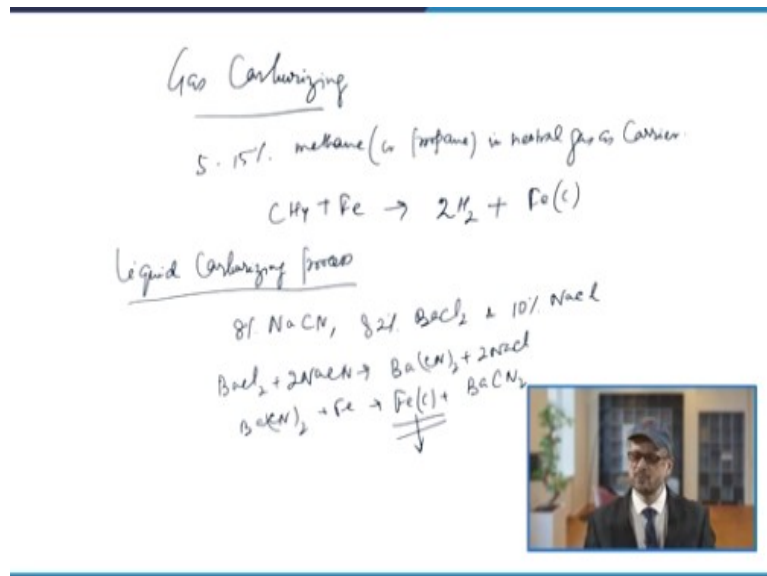 Gas Carburizing
5-15% methane (or propane) in neutral gas as Carrier.
CH4 + Fe → 2H2 + Fe(C)
Liquid Carburizing process
8% NaCN, 82% BaCl2 & 10% NaCl
BaCl2 + 2NaCN → Ba(CN)2 + 2NaCl
Ba(CN)2 + Fe → Fe(C) + BaCN2